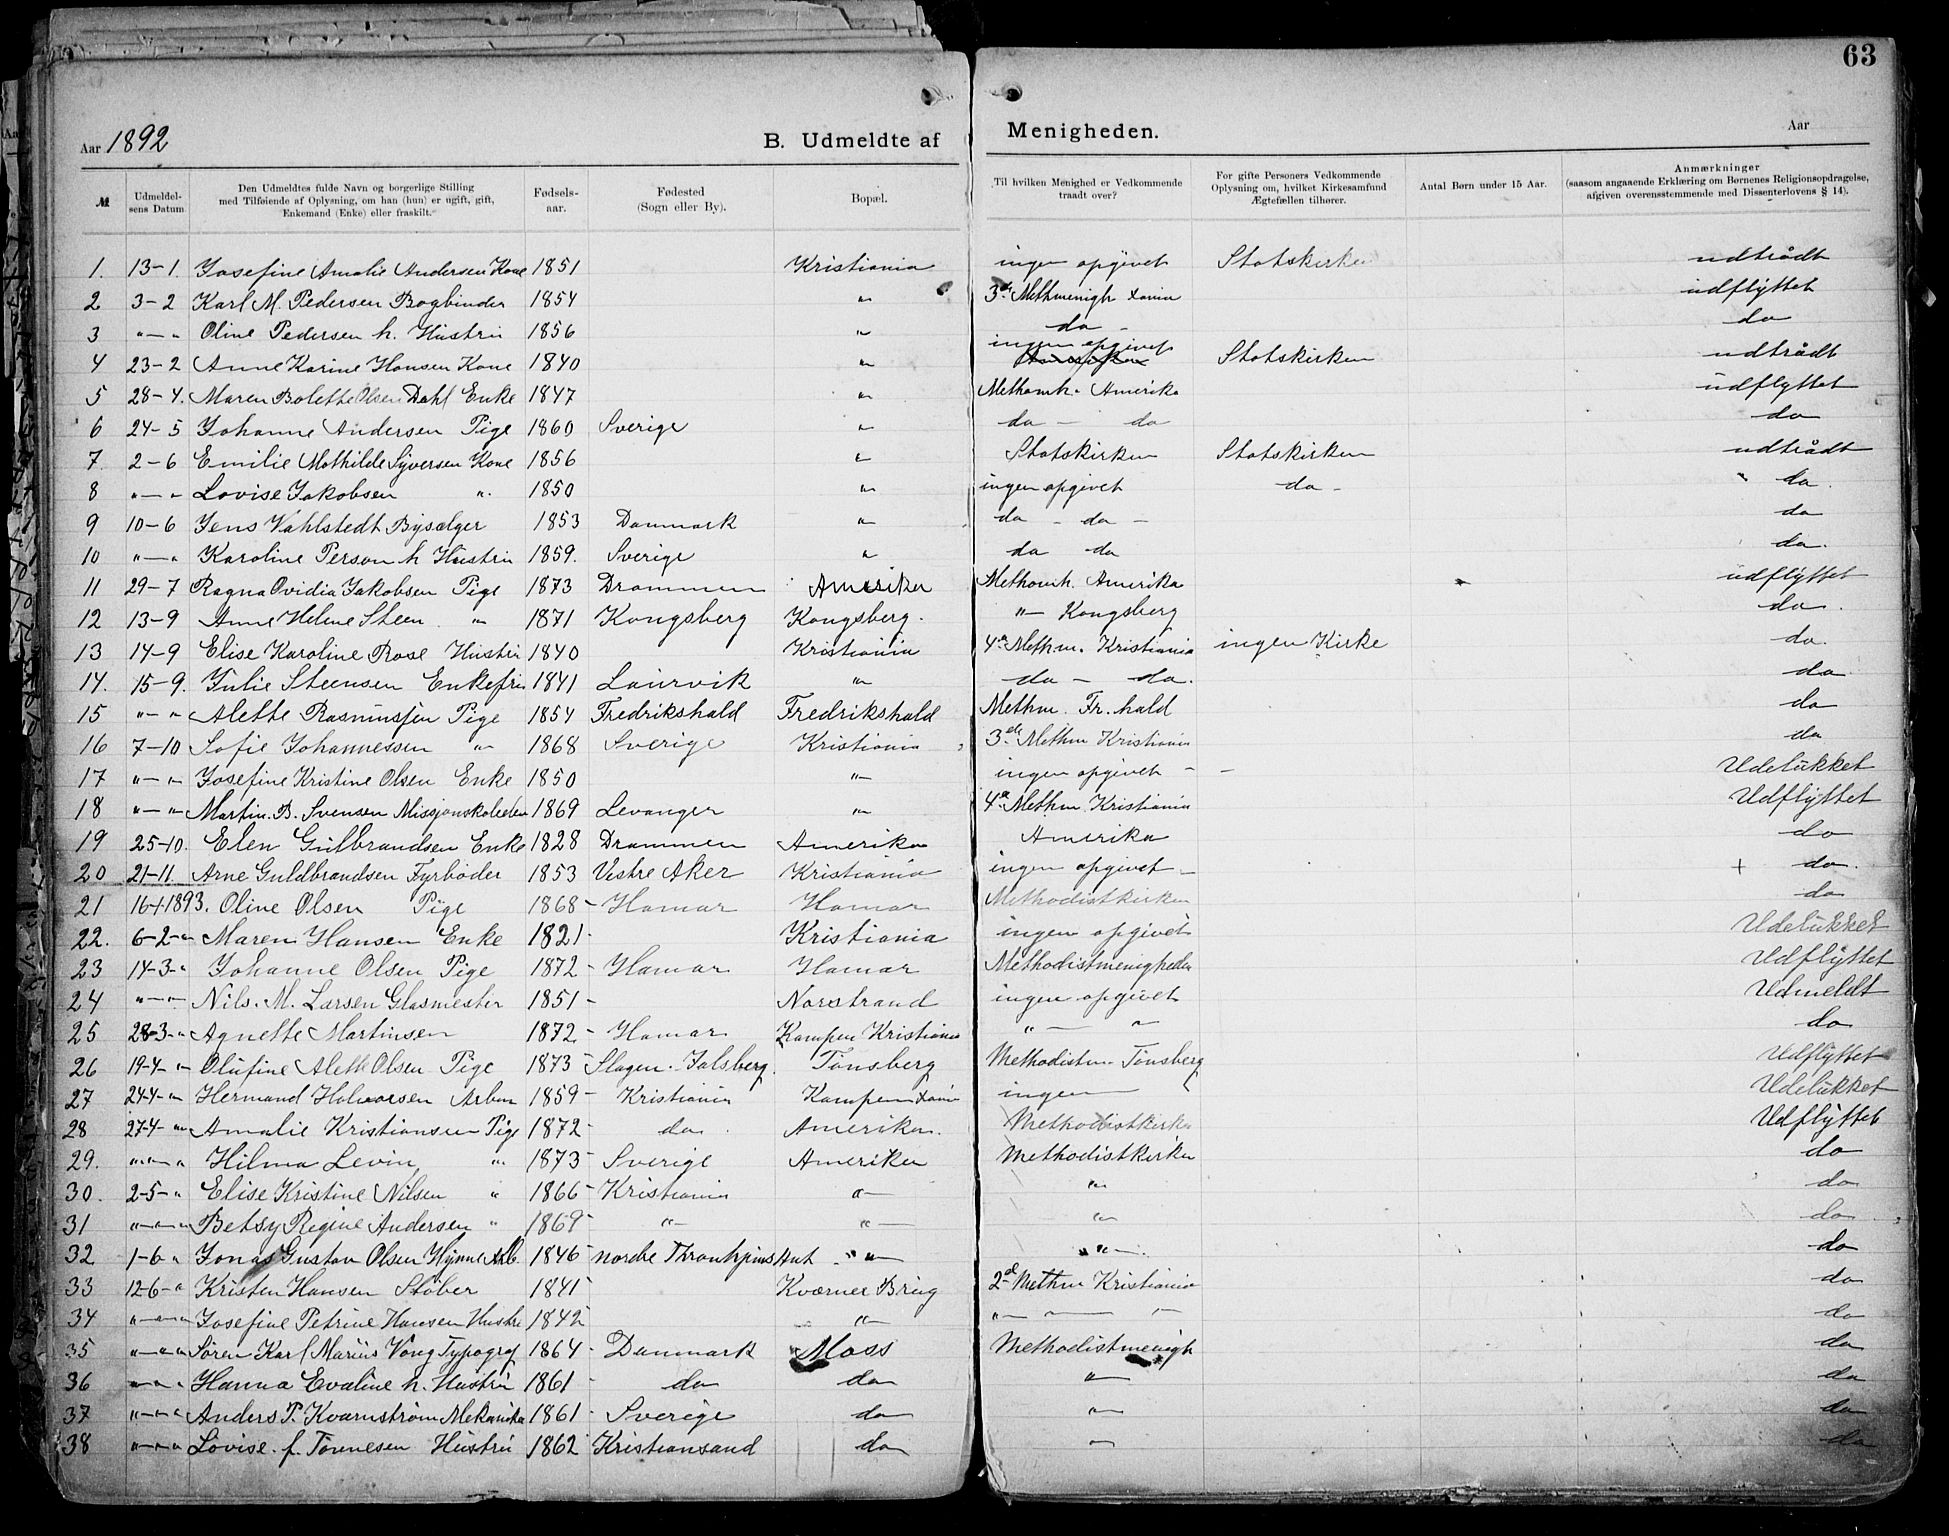 63
Aar 1892 B. Udmeldte af Menigheden. Aar
№ Udmeldelsens Datum. Den Udmeldtes fulde Navn og borgerlige Stilling med Tilføiende af Oplysning, om han (hun) er ugift, gift, Enkemand (Enke) eller fraskilt. Fødselsaar. Fødested (Sogn eller By). Bopæl. Til hvilken Menighed er Vedkommende traadt over? For gifte Personers Vedkommende Oplysning om, hvilket Kirkesamfund Ægtefællen tilhører. Antal Børn under 15 Aar. Anmærkninger (saasom angaaende Erklæring om Børnenes Religionsopdragelse, afgiven overensstemmende med Dissenterlovens § 14).
1. 13-1. Josefine Amalie Andersen Kone 1851 Kristiania ingen opgivet Statskirken udtrådt
2 3-2 Karl M. Pedersen Bogbinder 1854 " 3die Methmenigh Xania udflyttet
3 "-" Oline Pedersen h. Hustru 1856 " do - do
4 23-2 Anne Karine Hansen Kone 1840 " ingen opgivet Statskirken udtrådt
5 28-4. Maren Bolette Olsen Dahl Enke 1847 " Methomk. Amerika udflyttet
6 24-5 Johanne Andersen Pige 1860 Sverige " do - do do
7. 2-6 Emilie Mathilde Syversen Kone 1856 " Statskirken Statskirken udtrådt
8 "-" Lovise Jakobsen " 1850 " ingen opgivet do - do.
9 10-6 Jens Vahlstedt Bysælger 1853 Danmark " do - do - do
10 "-" Karoline Person h Hustru 1859. Sverige " do do do.
11 29-7 Ragna Ovidia Jakobsen Pige 1873 Drammen Amerika Methomk. Amerika udflyttet
12 13-9 Anne Helene Steen. " 1871 Kongsberg Kongsberg. "- Kongsberg do.
13 14-9 Elise Karoline Rose Hustru 1840 Kristiania 4de Methm. Kristiania ingen Kirke do.
14. 15-9. Julie Steensen Enkefru 1841 Laurvik " do - do. do
15 "-" Alette Rasmussen Pige 1854 Fredrikshald Fredrikshald Methm. Fr. hald do
16 7-10 Sofie Johannessen " 1868 Sverige Kristiania 3die Methm Kristiania do
17 "-" Josefine Kristine Olsen Enke 1850 " ingen opgivet - - Udelukket
18 "-" Martin. B. Svensen 1869 Levanger " 4de Methm Kristiania Udflyttet
19 25-10. Elen Gulbrandsen Enke 1828 Drammen Amerika Amerika do
20 21-11 Arne Guldbrandsen Fyrbøder 1853 Vestre Aker Kristiania ingen opgivet - + do.
21 1893. Oline Olsen Pige 1868- Hamar Hamar Methodistkirken do
22. 6-2-" Maren Hansen Enke 1821- Kristiania ingen opgivet Udelukket
23 14-3-" Johanne Olsen Pige 1872- Hamar Hamar Methodistmenigheden Udflyttet
24 "-"- Nils. M. Larsen Glasmester 1851- Norstrand ingen opgivet Udmeldt
25 28-3-" Agnette Martinsen 1872- Hamar Kampen Kristiania "- " do
26 19-4-" Olufine Alette Olsen Pige 1873- Slagen. Jalsberg. Tønsberg Methodistm. Tønsberg Udflyttet
27 24-4-" Hermand Halvorsen Arbm 1859- Kristiania Kampen Xania ingen - Udelukket
28 27-4-" Amalie Kristiansen Pige 1872- do. Amerika. Methodistkirken Udflyttet
29. "-"-" Hilma Levin " 1873- Sverige Amerika Methodistkirken do
30. 2-5-" Elise Kristine Nilsen " 1866- Kristiania "- " do
31 "-"-" Betsy Regine Andersen " 1869- "- "- " do
32 1-6 " Jonas Gustav Olsen Hynne Arb. 1846- nordre "- "-. do
33 12-6-" Kristen Hansen Støber 1841- Kværner Brug 2den Methm Kristiania do
34 "-"-" Josefine Petrine Hansen Hustru 1842- "- "- - "- do
35 "-"-" Søren Karl Marius Vong Typograf 1864- Danmark Moss Methodistmenigh do
36 "-"-" Hanna Evaline h. Hustru 1861- do do "- do
37 "-"-" Anders P. Kvarnstrøm Mekanike 1861- Sverige do "- do
38 "-"-" Lovise. f. Tønnesen Hustru 1862- Kristiansand do "- do